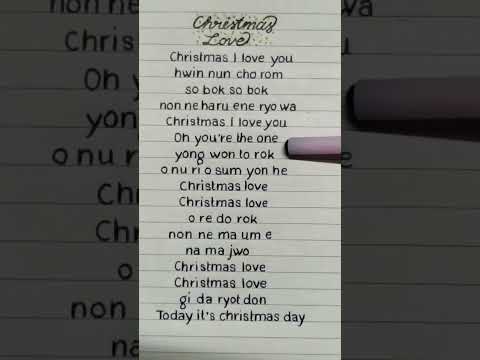 Christmas
Love
Christmas I love you
hwin nun cho rom
so bok so bok
non ne haru ene ryo wa
Christmas I love you
Oh you're the one
yong won to rok
o nu ri o sum yon he
Christmas love
Christmas love
o re do rok
non ne ma um e
na ma jwo
Christmas love
Christmas love
gi da ryot don
Today it's christmas day